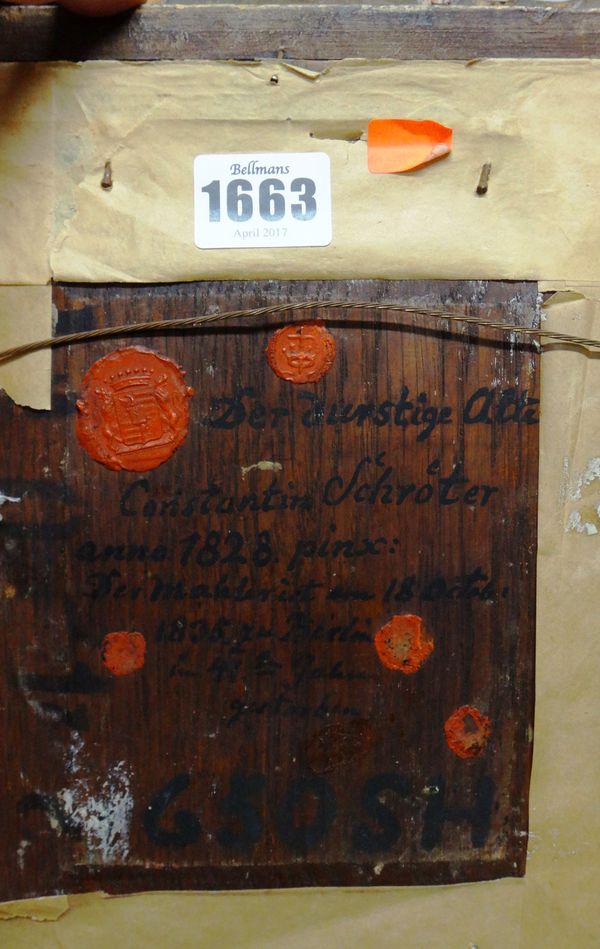 Bellmans
1663
April 2017
Der durstige Alte
Constantin Schröter
anno 1828. pinx:
Der Mahler ist am 18 Octob:
1835 zu Berlin
im
gestorben
650SH